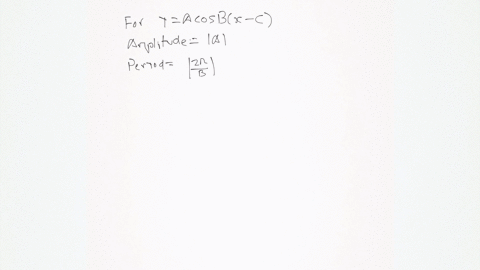 For y = A cos B(x - C)
Amplitude = |A|
Period = |2π/B|